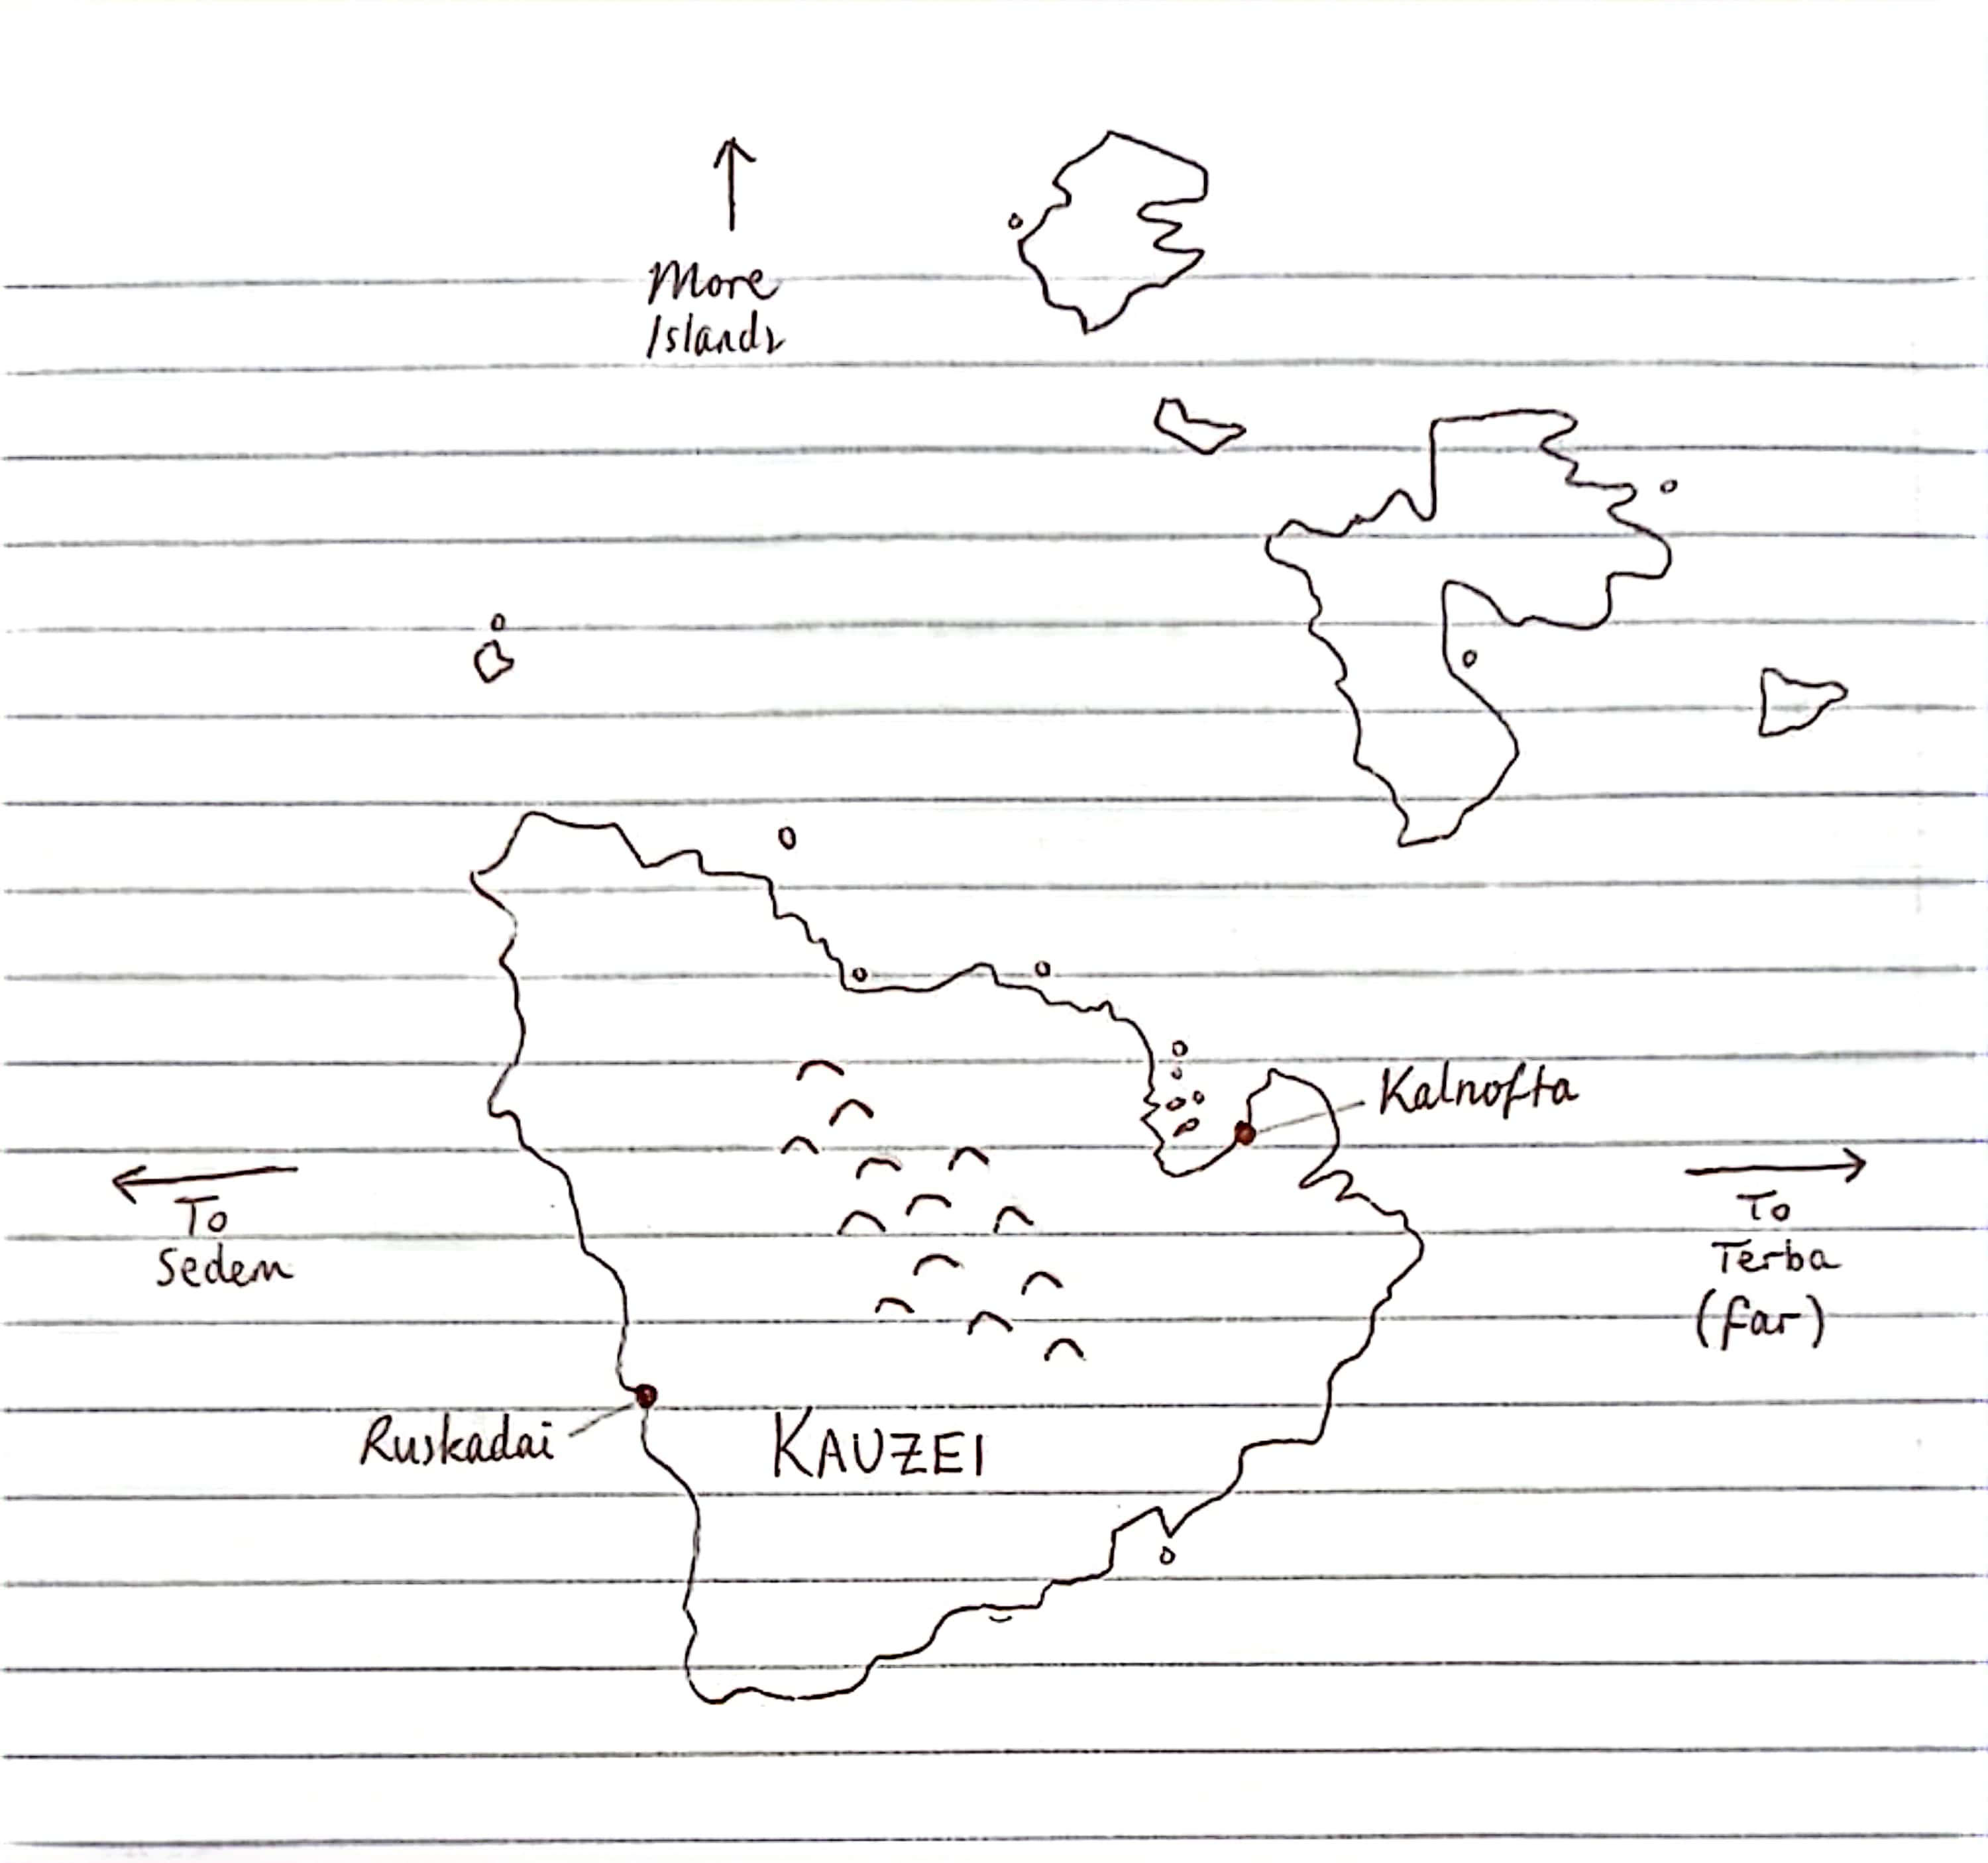 More
Islands
Kalnofta
To
Sedem
To
Terba
(far)
Ruskadai
KAUZEI